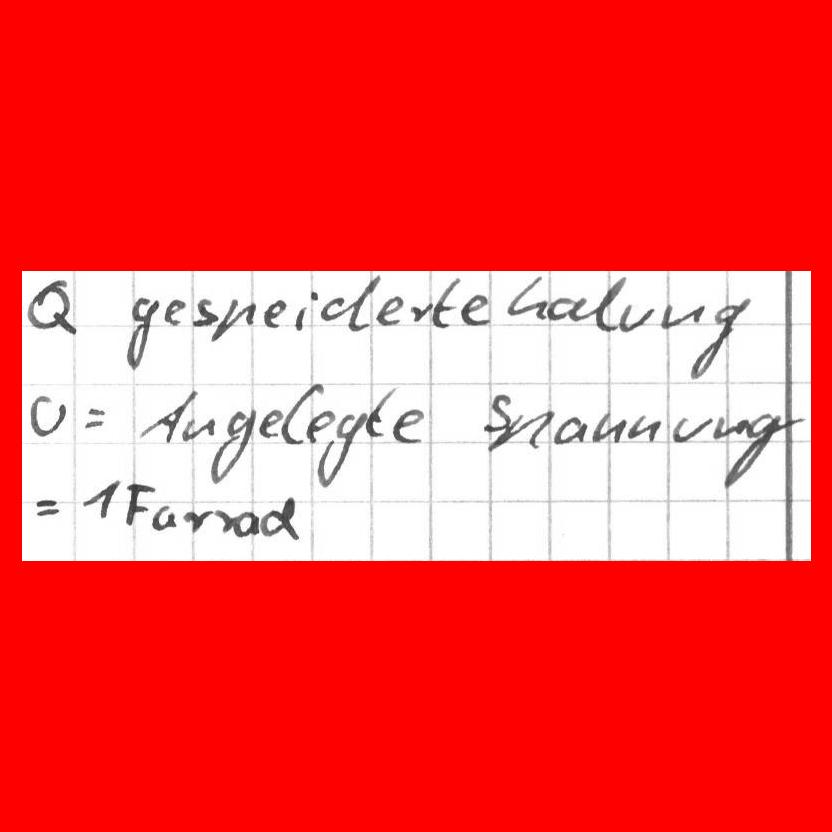 Q gespeicherte Ladung
U = Angelegte Spannung
= 1 Farrad